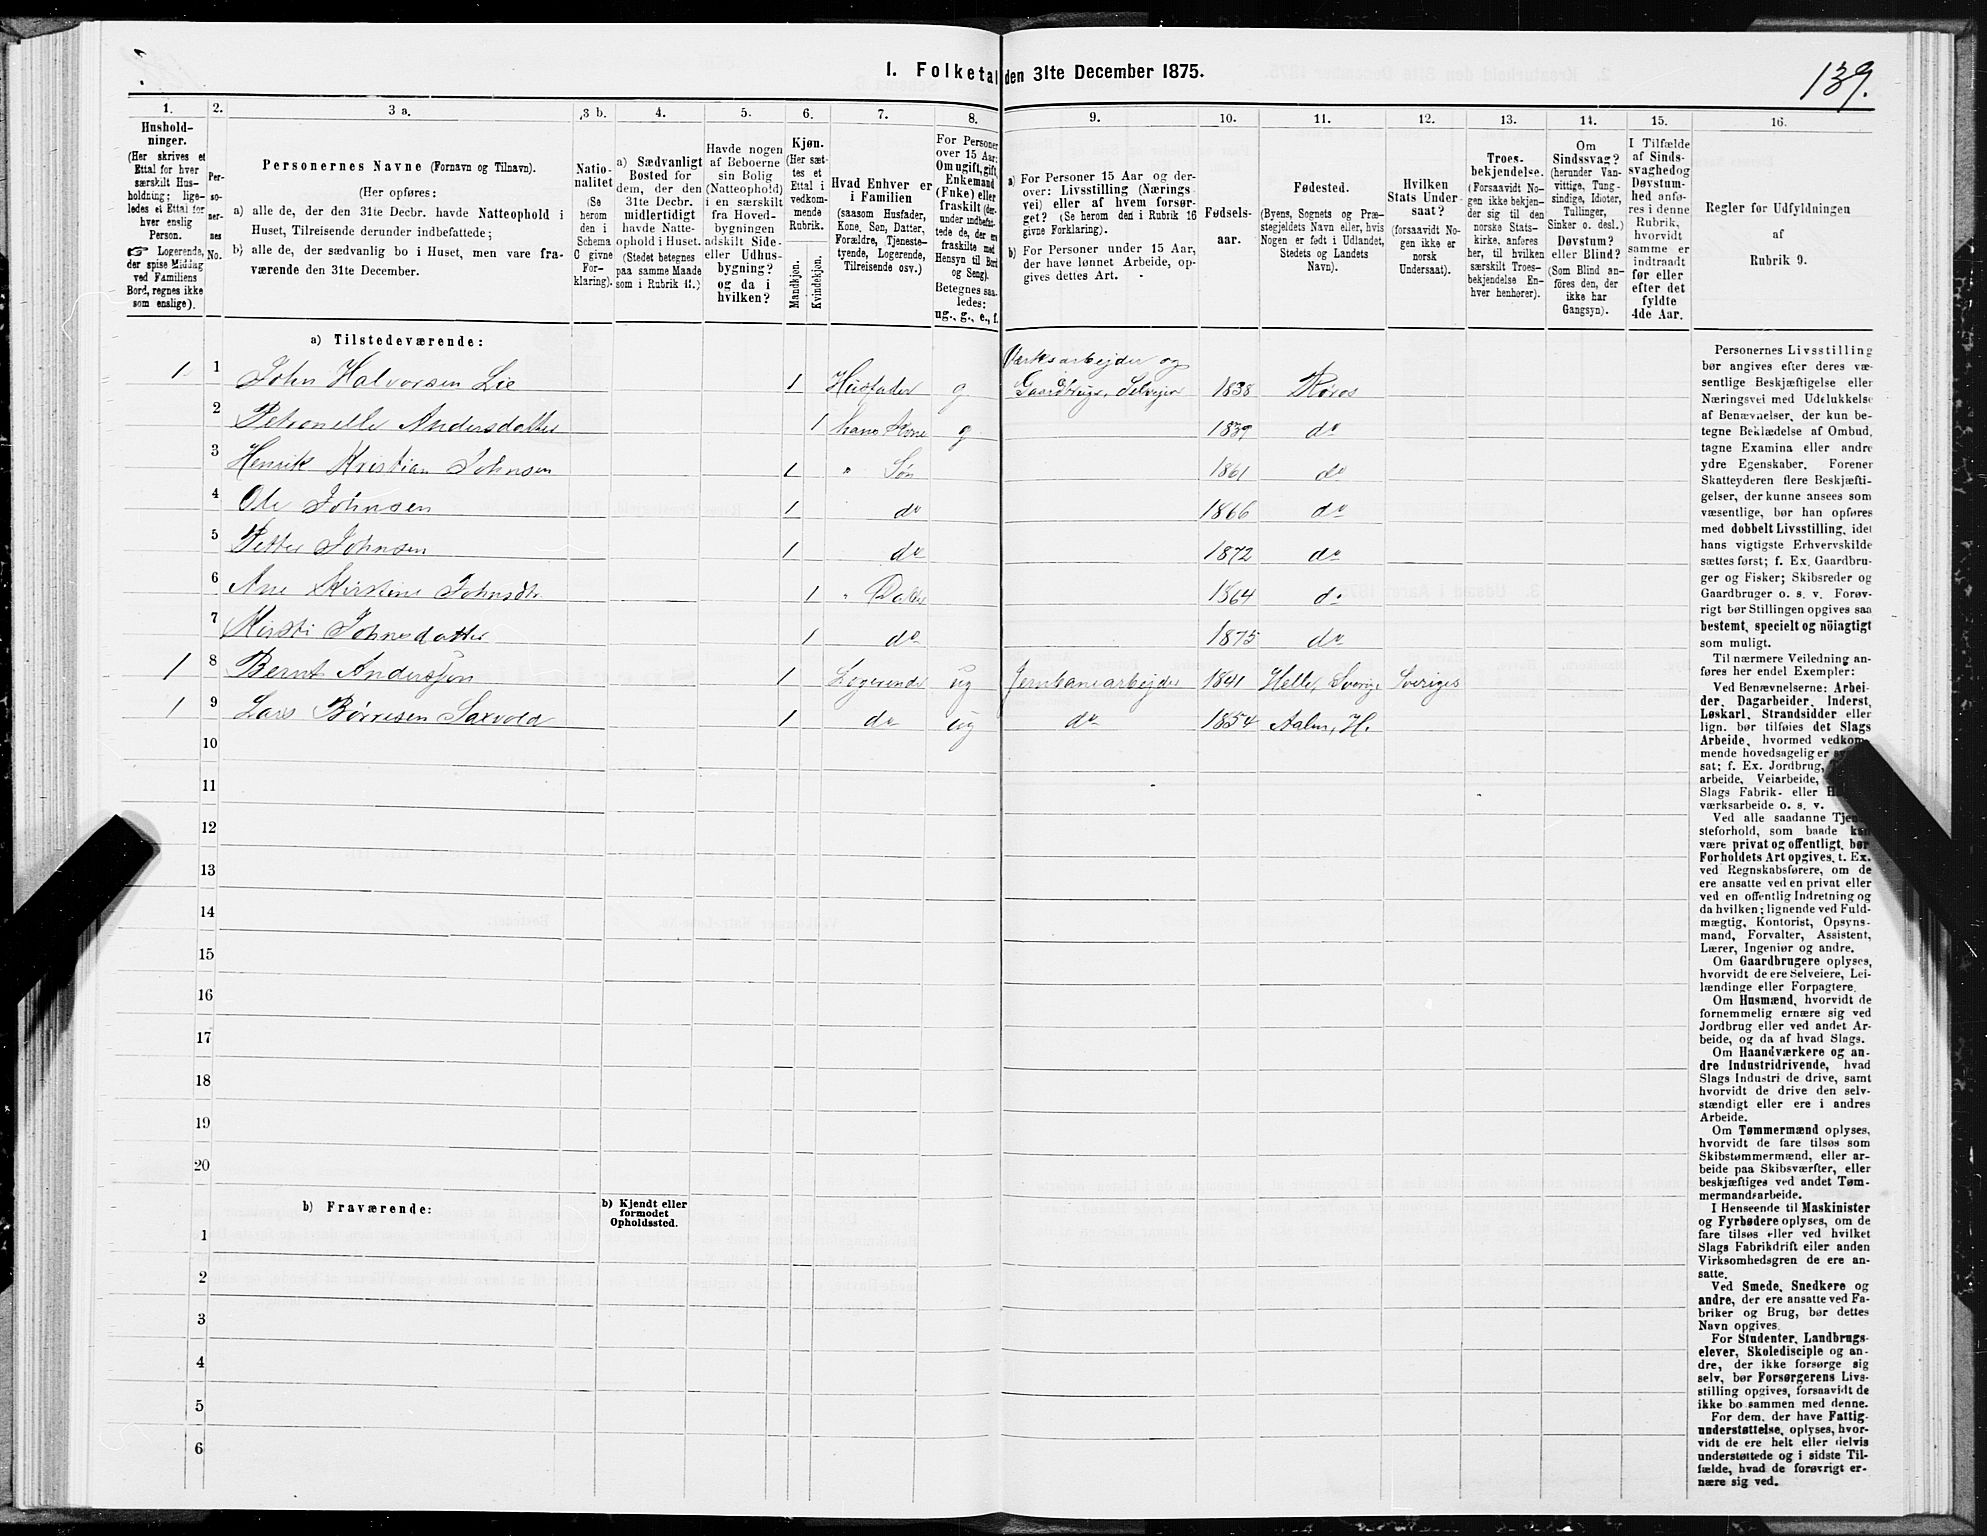 I. Folketal den 31te December 1875.
139.
1.
Hushold-
ninger.
(Her skrives et
Ettal for hver
særskilt Hus-
holdning; lige-
ledes et Ettal for
hver enslig
Person.
☞ Logerende,
der spise Middag
ved Familiens
Bord, regnes ikke
som enslige).
2.
Per-
so-
ner-
nes
No.
3 a.
Personernes Navne (Fornavn og Tilnavn).
(Her opføres:
a) alle de, der den 31te Decbr. havde Natteophold i
Huset, Tilreisende derunder indbefattede;
b) alle de, der sædvanlig bo i Huset, men vare fra-
værende den 31te December.
3 b.
Natio-
nalitet
(Se
herom
den i
Schema
C givne
For-
klaring).
4.
a) Sædvanligt
Bosted for
dem, der den
31te Decbr.
midlertidigt
havde Natte-
ophold i Huset.
(Stedet betegnes
paa samme Maade
som i Rubrik 11.)
5.
Havde nogen
af Beboerne
sin Bolig
(Natteophold)
i en særskilt
fra Hoved-
bygningen
adskilt Side-
eller Udhus-
bygning?
og da i
hvilken?
6.
Kjøn.
(Her sæt-
tes et
Ettal i
vedkom-
mende
Rubrik.
Mandkjøn.
Kvindekjøn.
7.
Hvad Enhver er
i Familien
(saasom Husfader,
Kone, Søn, Datter,
Forældre, Tjeneste-
tyende, Logerende,
Tilreisende osv.)
8.
For Personer
over 15 Aar:
Om ugift, gift,
Enkemand
(Enke) eller
fraskilt (der-
under indbefat-
tede de, der ere
fraskilte med
Hensyn til Bord
og Seng).
Betegnes saa-
ledes:
ug., g., e., f.
9.
a) For Personer 15 Aar og der-
over: Livsstilling (Nærings-
vei) eller af hvem forsør-
get? (Se herom den i Rubrik 16
givne Forklaring).
b) For Personer under 15 Aar,
der have lønnet Arbeide, op-
gives dettes Art.
10.
Fødsels-
aar.
11.
Fødested.
(Byens, Sognets og Præ-
stegjeldets Navn eller, hvis
Nogen er født i Udlandet,
Stedets og Landets
Navn).
12.
Hvilken
Stats Under-
saat?
(forsaavidt No-
gen ikke er
norsk
Undersaat).
13.
Troes-
bekjendelse.
(Forsaavidt No-
gen ikke bekjen-
der sig til den
norske Stats-
kirke, anføres
her, til hvilken
særskilt Troes-
bekjendelse En-
hver henhører).
14.
Om
Sindssvag?
(herunder Van-
vittige, Tung-
sindige, Idioter,
Tullinger,
Sinker o. desl.)
Døvstum?
eller Blind?
(Som Blind an-
føres den, der
ikke har
Gangsyn).
15.
I Tilfælde
af Sinds-
svaghed og
Døvstum-
hed anfø-
res i denne
Rubrik,
hvorvidt
samme er
indtraadt
før eller
efter det
fyldte
4de Aar.
16.
Regler for Udfyldningen
af
Rubrik 9.
a) Tilstedeværende:
Værksarbejder og
1 1 John Halvorsen Lie 1 Husfader g Gaardbruger, Selvejer 1838 Røros
2 Petronelle Andersdatter 1 hans Kone g 1839 do
3 Henrik Kristian Johnsen 1 " Søn 1861 do
4 Ole Johnsen 1 do 1866 do
5 Petter Johnsen 1 do 1872 do
6 Ane Kirstine Johnsdtr 1 " Datter 1864 do
7 Kirsti Johnsdatter 1 do 1875 do
1 8 Bernt Anderssen 1 Logerende ug Jernbanearbejder 1841 Helle, Sverige Sveriges
1 9 Lars Børresen Saxvold 1 do ug do 1854 Aalen, H.
10
11
12
13
14
15
16
17
18
19
20
b) Fraværende:
b) Kjendt eller
formodet
Opholdssted.
1
2
3
4
5
6
Personernes Livsstilling
bør angives efter deres væ-
sentlige Beskjæftigelse eller
Næringsvei med Udelukkelse
af Benævnelser, der kun be-
tegne Beklædelse af Ombud,
tagne Examina eller andre
ydre Egenskaber. Forener
Skatteyderen flere Beskjæfti-
gelser, der kunne ansees som
væsentlige, bør han opføres
med dobbelt Livsstilling, idet
hans vigtigste Erhvervskilde
sættes først; f. Ex. Gaardbru-
ger og Fisker; Skibsreder og
Gaardbruger o. s. v. Forøv-
rigt bør Stillingen opgives saa
bestemt, specielt og nöiagtigt
som muligt.
Til nærmere Veiledning an-
føres her endel Exempler:
Ved Benævnelserne: Arbei-
der, Dagarbeider, Inderst,
Løskarl, Strandsidder eller
lign. bør tilføies det Slags
Arbeide, hvormed vedkom-
mende hovedsagelig er
sat; f. Ex. Jordbrug,
arbeide, Veiarbeide,
Slags Fabrik- eller
værksarbeide o. s. v.
Ved alle saadanne Tjene-
steforhold, som baade kan
være privat og offentligt, bør
Forholdets Art opgives, t. Ex.
ved Regnskabsførere, om de
ere ansatte ved en privat eller
ved en offentlig Indretning og
da hvilken; lignende ved Fuld-
mægtig, Kontorist, Opsyns-
mand, Forvalter, Assistent,
Lærer, Ingeniør og andre.
Om Gaardbrugere oplyses,
hvorvidt de ere Selveiere, Lei-
lændinge eller Forpagtere.
Om Husmænd, hvorvidt de
fornemmelig ernære sig ved
Jordbrug eller ved andet Ar-
beide, og da af hvad Slags.
Om Haandværkere og an-
dre Industridrivende, hvad
Slags Industri de drive, samt
hvorvidt de drive den selv-
stændigt eller ere i andres
Arbeide.
Om Tømmermænd oplyses,
hvorvidt de fare tilsøs som
Skibstømmermænd, eller ar-
beide paa Skibsværfter, eller
beskjæftiges ved andet Tøm-
mermandsarbeide.
I Henseende til Maskinister
og Fyrbødere oplyses, om de
fare tilsøs eller ved hvilket
Slags Fabrikdrift eiler anden
Virksomhedsgren de ere an-
satte.
Ved Smede, Snedkere og
andre, der ere ansatte ved Fa-
briker og Brug, bør dettes
Navn opgives.
For Studenter, Landbrugs-
elever, Skoledisciple og an-
dre, der ikke forsørge sig
selv, bør Forsørgerens Livs-
stilling opgives, forsaavidt de
ikke bo sammen med denne.
For dem, der have Fattig-
understøttelse, oplyses, hvor-
vidt de ere helt eller delvis
understøttede og i sidste Til-
fælde, hvad de forøvrigt er-
nære sig ved.